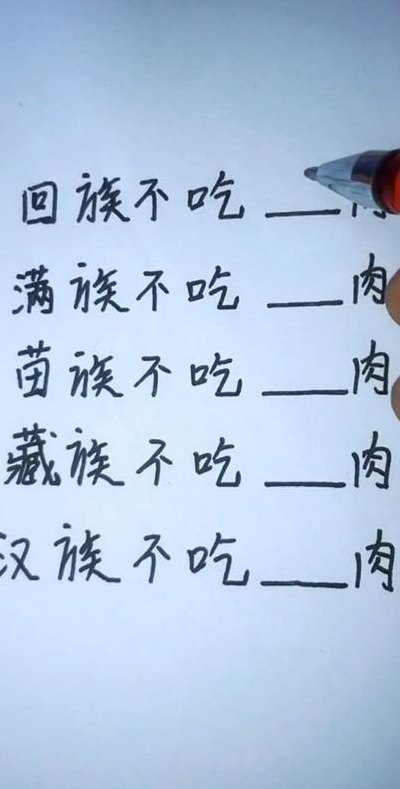 回族不吃___肉
满族不吃___肉
苗族不吃___肉
藏族不吃___肉
汉族不吃___肉